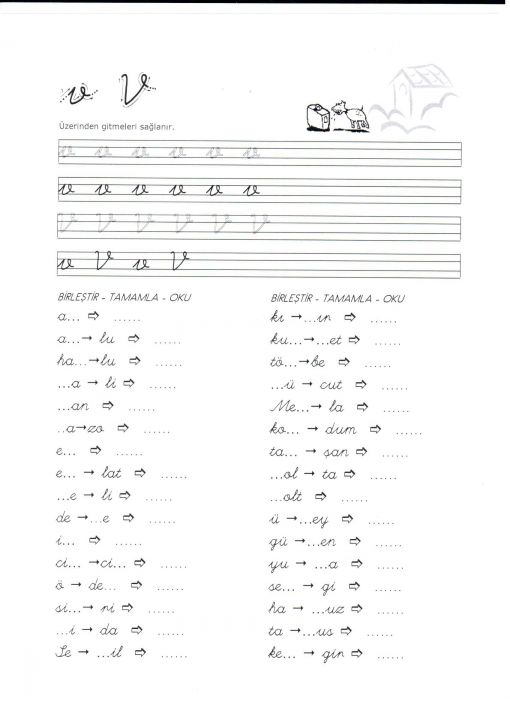 v V
Üzerinden gitmeleri sağlanır.
v v v v v v
v v v v v v
V V V V V V
v V v V
BİRLEŞTİR - TAMAMLA - OKU
a... ⇨ ......
a...→ lu ⇨ ......
ha...→lu ⇨ ......
...a → li ⇨ ......
...an ⇨ ......
..a→zo ⇨ ......
e... ⇨ ......
e... → lat ⇨ ......
...e → li ⇨ ......
de →...e ⇨ ......
i... ⇨ ......
ci... →ci... ⇨ ......
ö → de... ⇨ ......
si...→ ri ⇨ ......
...i → da ⇨ ......
Se → ...il ⇨ ......
BİRLEŞTİR - TAMAMLA - OKU
kı →...ır ⇨ ......
ku...→...et ⇨ ......
tö...→be ⇨ ......
...ü → cut ⇨ ......
Me...→ la ⇨ ......
ko... → dum ⇨ ......
ta... → şan ⇨ ......
...ol → ta ⇨ ......
...olt ⇨ ......
ü →...ey ⇨ ......
gü →...en ⇨ ......
yu → ...a ⇨ ......
se... → gi ⇨ ......
ha → ...uz ⇨ ......
ta →...us ⇨ ......
ke... → gir ⇨ ......